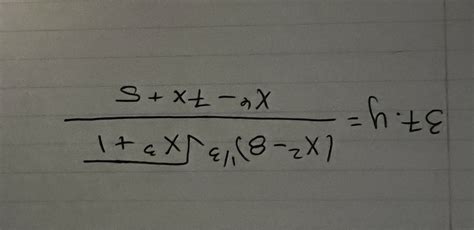 37. y = \frac{(x^2-8)^{1/3} \sqrt{x^3+1}}{x^6-7x+5}